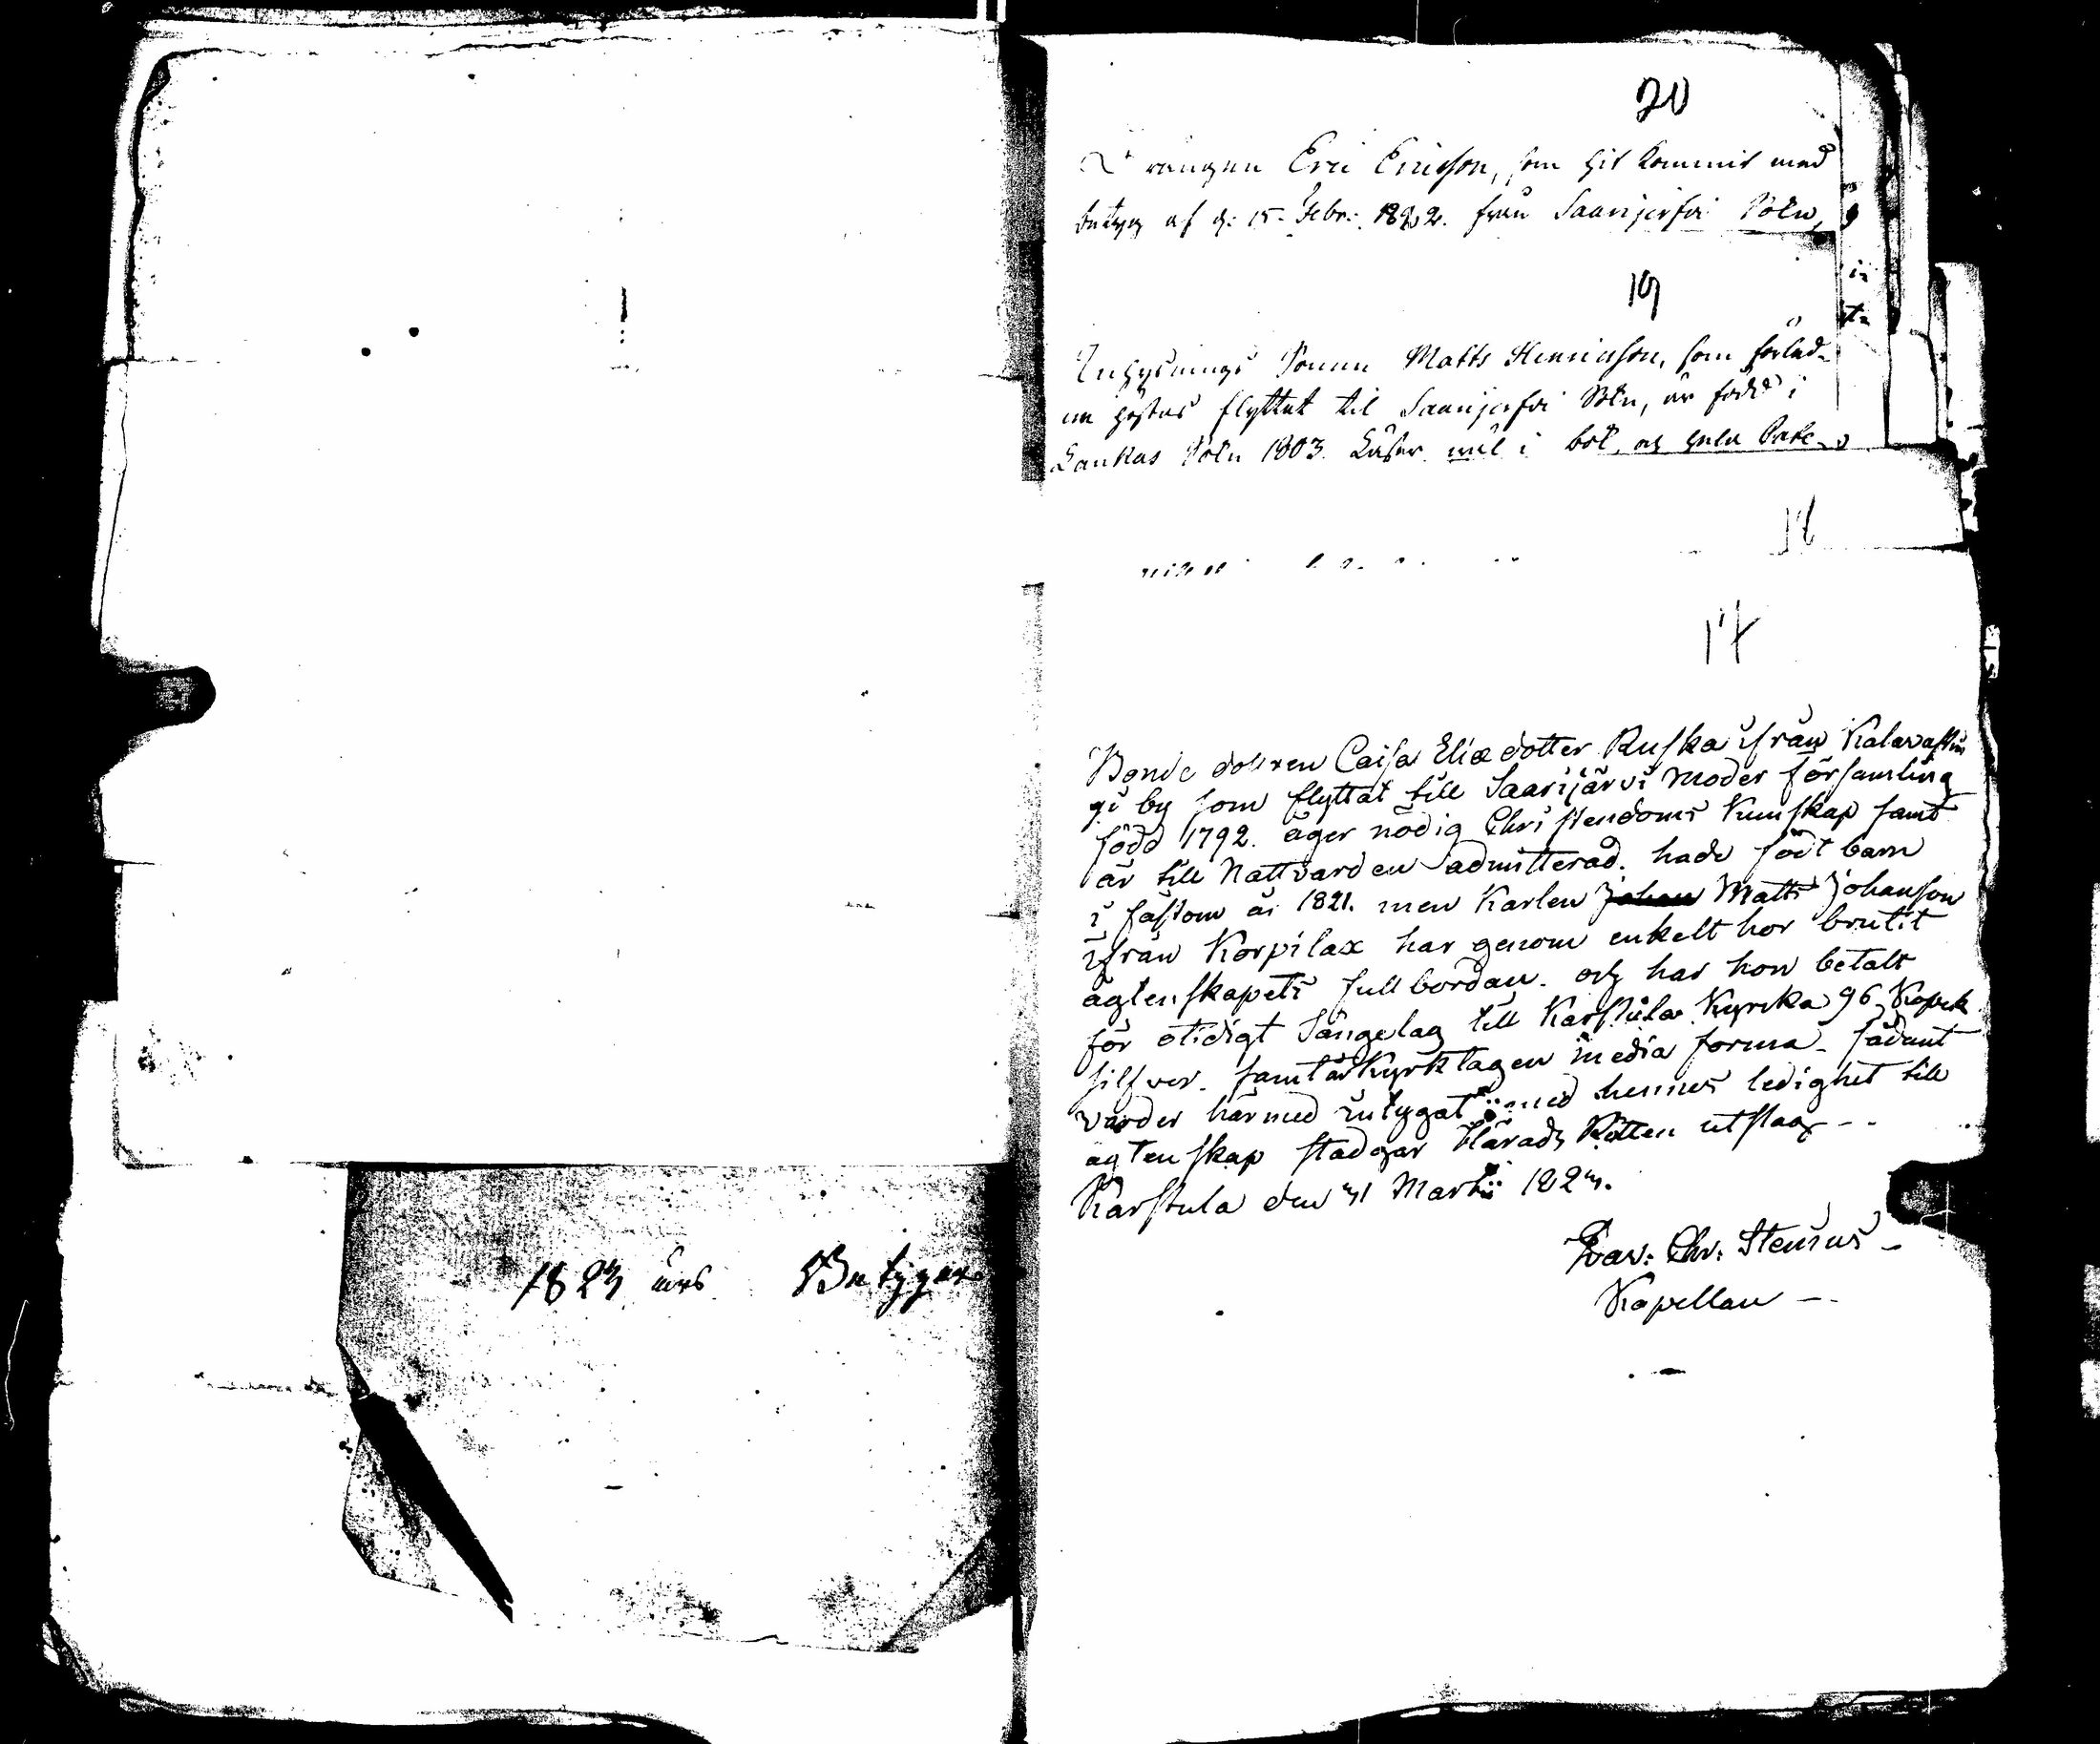 1823 års Betyger
20
Drängen Eric Ericsson, som hit kommit med
betyg af d: 15 Febr: 1822. från Saarijerfvi Sokn,
19
Inhysnings Sonen Matts Henricsson, som förled-
en höstas flyttat til Saarijerfvi Sokn, är född i
Laukas Sokn 1803. Läser väl i bok, och hela Cate-
18
17
Bonde dottren Caisa Eliædotter Ruska ifrån Kalavastin
gi by som flyttat till Saarijärvi Moder församling
född 1792. äger nödig Christendoms Kunskap samt
är till Nattvarden admitterad. hade födt barn
i fästom år 1821. men Karlen Johan Matts Johansson
ifrån Korpilax har genom enkelt hor brutit
ägtenskapets fullbordan. och har hon betalt
för otidigt Sängelag till Karstula Kyrcka 96 Kopek
silfver. samt är Kyrktagen media forma. sådant
varder härmed intygat med hennes ledighet till
ägtenskap stadgar Härads Rätten utslag --
Karstula den 31 Martii 1823.
Evar: Chr: Stenius
Kapellan --